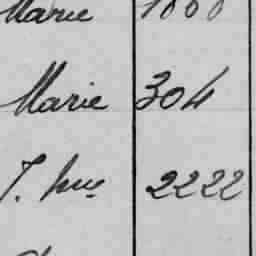 Marie 1000
Marie 304
2222